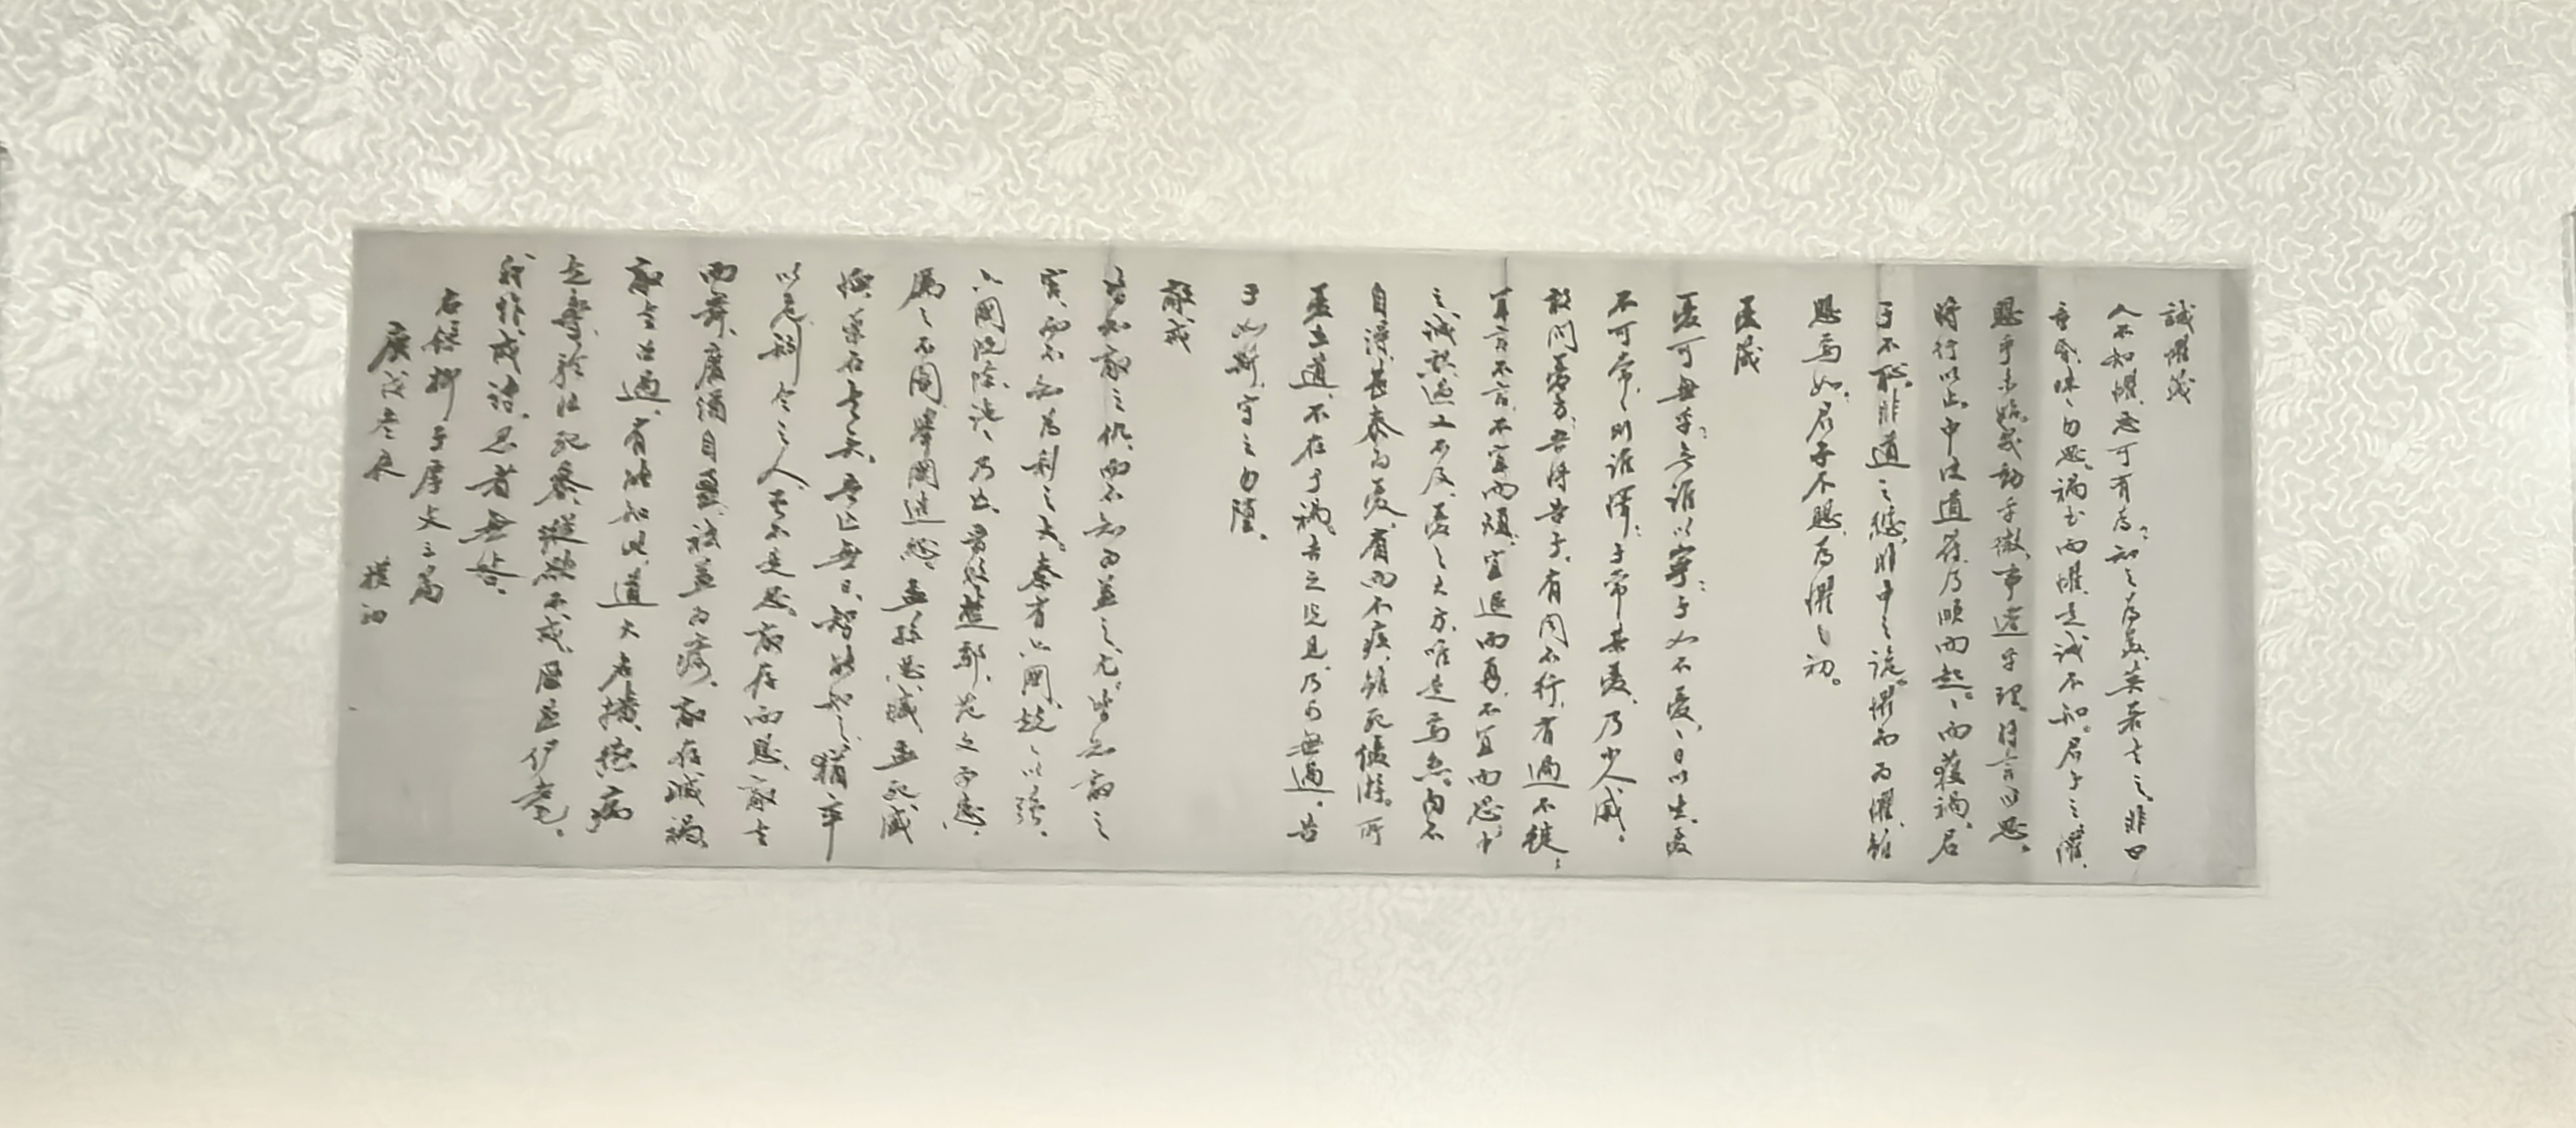 誡懼箴
人不知懼,惡可有為;知之為美,莫若去之。非曰
童昏,昧、勿思。禍至而懼,是誠不知。君子之懼,
懼乎未始。幾動乎微,事遷乎理。將言以思。
將行以止。中決道符,乃順而起。、而獲禍,君
子不恥。非道之愆,非中之詭。懼而為懼,雖
懼焉如。君子不懼,為懼之初。
憂箴
憂可無乎;無誰以寧;子如不憂,、日以生。憂
不可常,、則誰懌;子常其憂,乃小人戚。
敢問憂方,吾將告子。有聞不行,有過不徙;
宜言不言,不宜而煩;宜退而勇,不宜而恐。中
之誠懇,過又不及。憂之大方,唯是焉急。內不
自得,甚泰為憂。省而不疚,雖死優游。所
憂在道,不在乎禍。吉之先見,乃可無過。告
子如斯,守之勿墮。
敵戒
皆知敵之仇,而不知為益之尤。皆知敵之
害,而不知為利之大。秦有六國,兢、以強。
六國既除,訑、乃亡。晉敗楚鄢,范文為患。
厲之不圖,舉國造怨。孟孫惡臧,孟死臧
恤。藥石去矣,吾亡無日。智能知之,猶卒
以危。矧今之人,曾不是思。敵存而懼,敵去
而舞。廢備自盈,祗益為瘉。敵存滅禍,
敵去召過。有能知此,道大名播。懲病
克壽,矜壯死暴。縱欲不戒,匪愚伊耄。
我作戒詩,思者無咎。
右錄柳子厚文三篇
庚戌冬 樸初